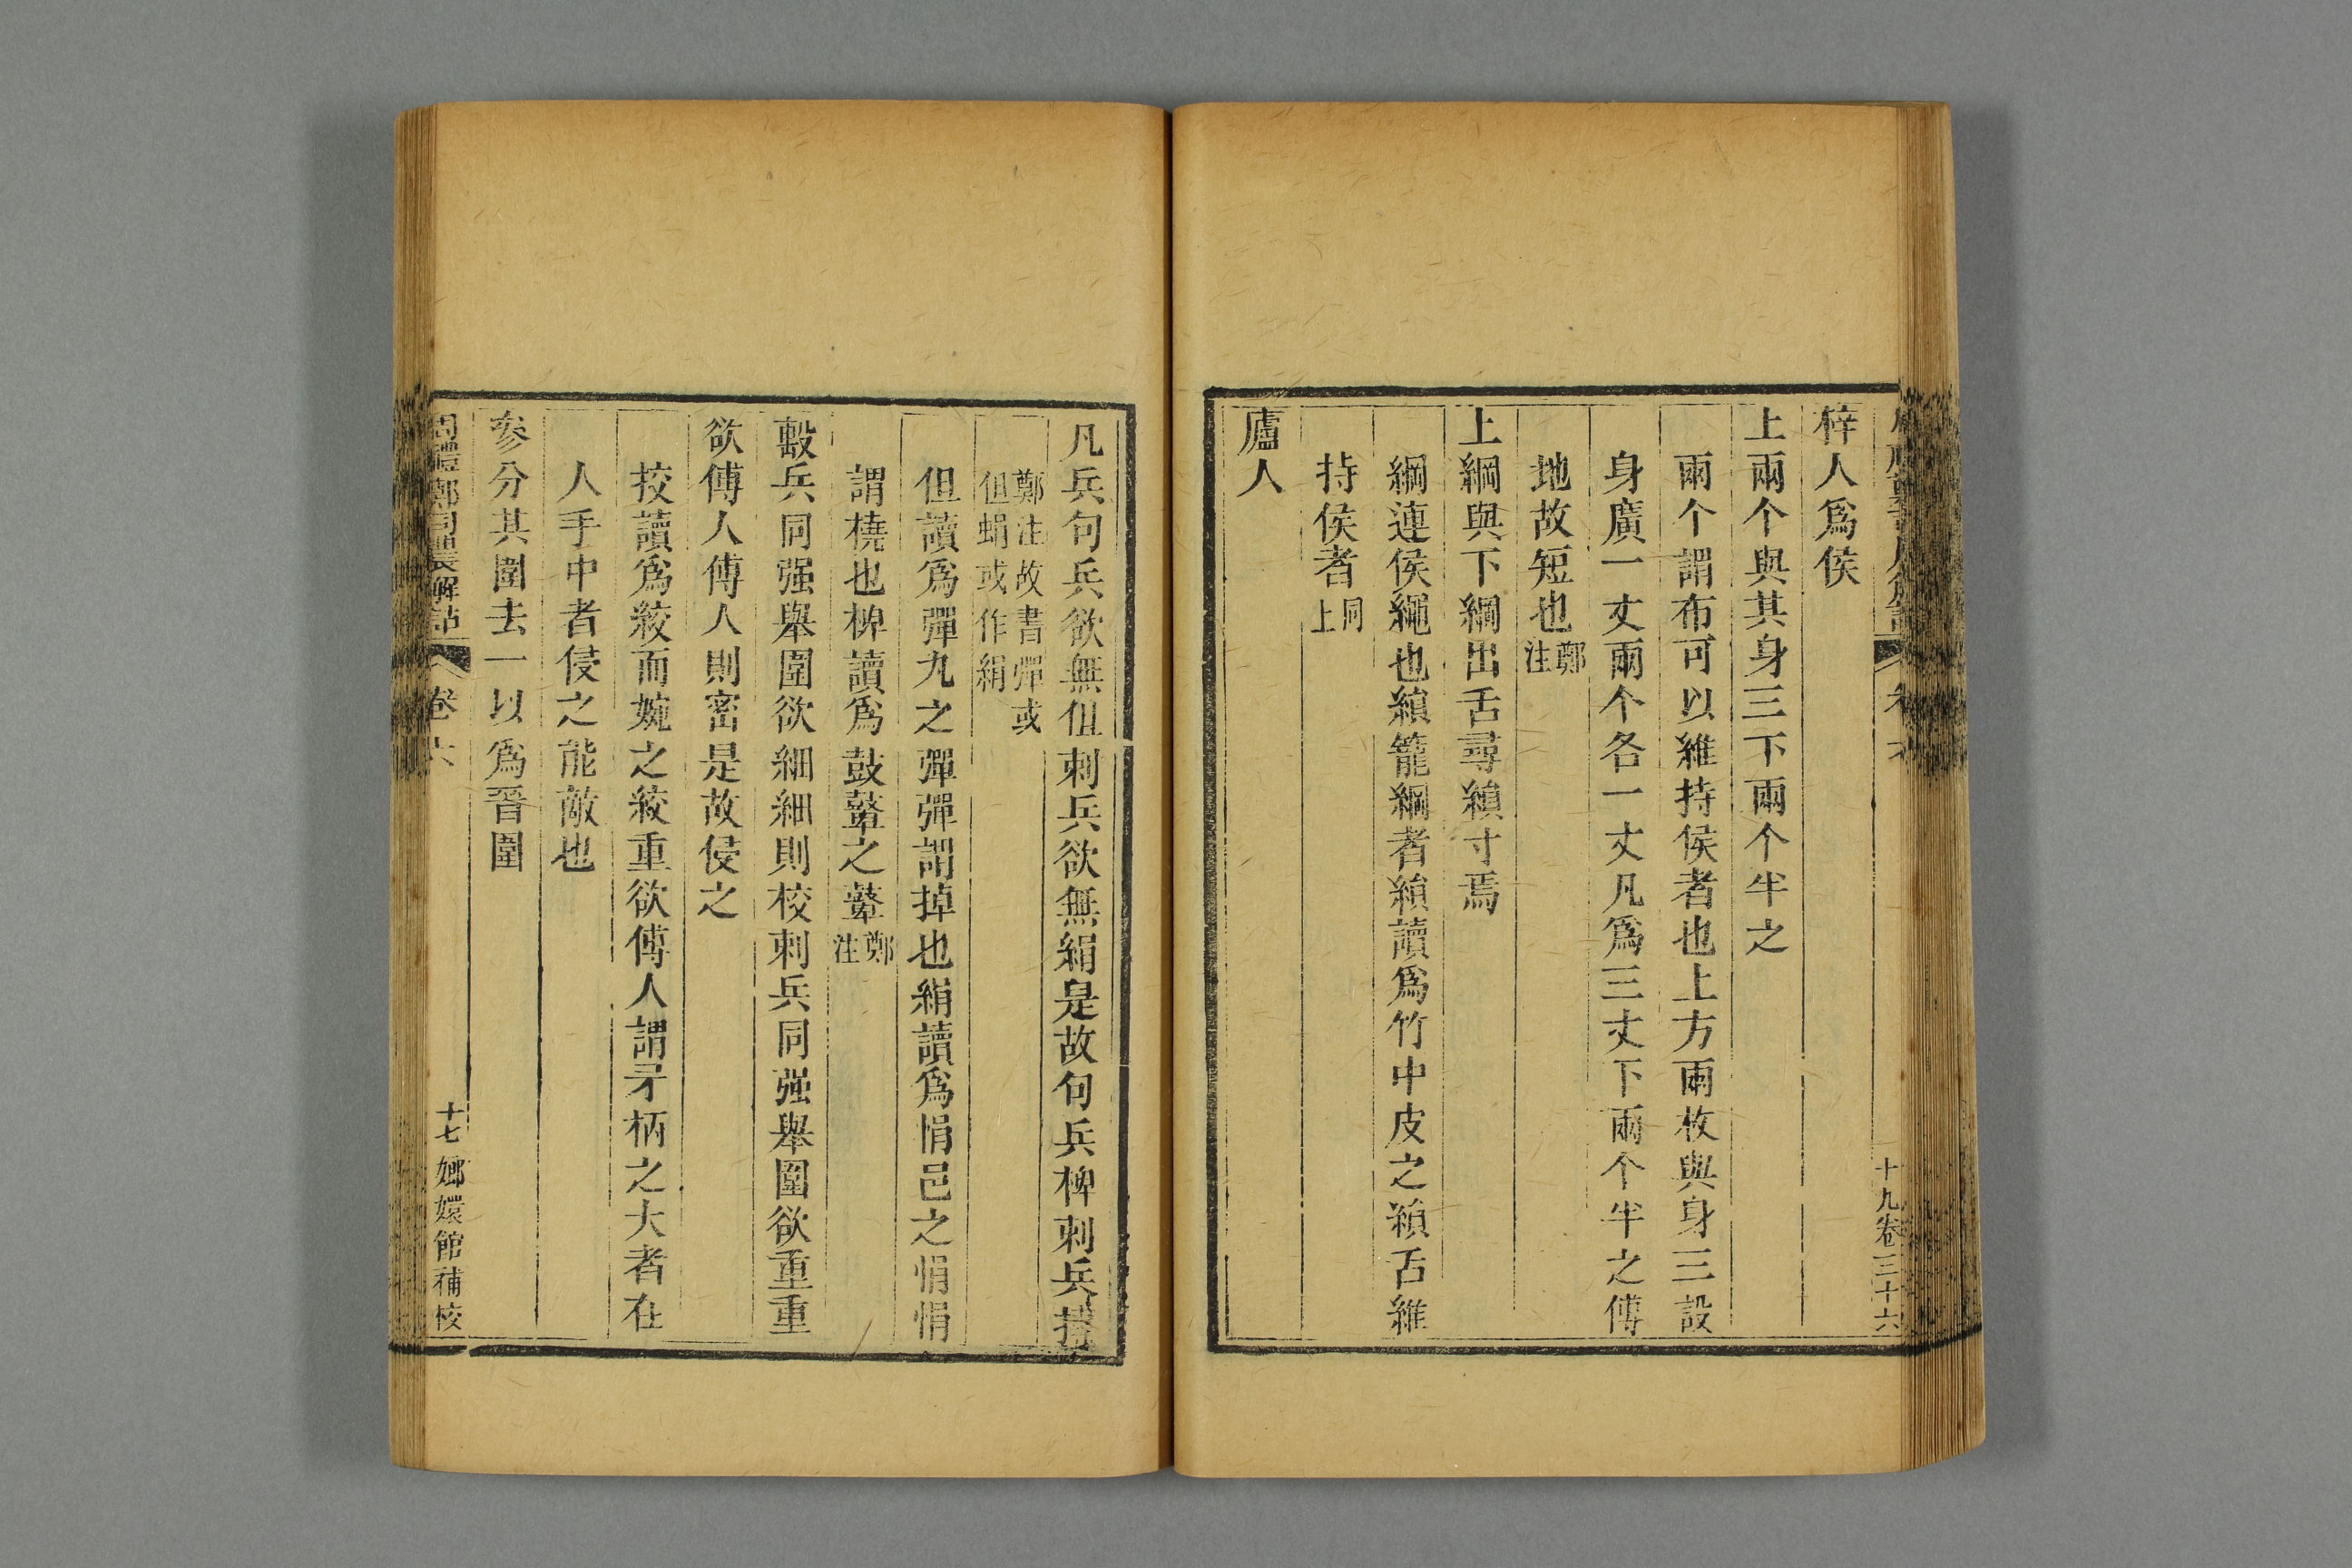 十九卷三十六
梓人爲侯
上兩个與其身三下兩个半之
兩个謂布可以維持侯者也上方兩枚與身三設
身廣一丈兩个各一丈凡爲三丈下兩个半之傅
地故短也鄭注
上綱與下綱出舌尋縜寸焉
綱連侯繩也縜籠綱者縜讀爲竹中皮之縜舌維
持侯者同上
廬人
凡兵句兵欲無但刺兵欲無絹是故句兵椑刺兵摶
鄭注故書彈或
但蜎或作絹
但讀爲彈九之彈彈謂掉也絹讀爲悁邑之悁悁
謂橈也椑讀爲鼓鼙之鼙鄭注
毄兵同强舉圍欲細細則校刺兵同强舉圍欲重重
欲傅人傅人則密是故侵之
挍讀爲絞而婉之絞重欲傅人謂矛柄之大者在
人手中者侵之能敵也
參分其圍去一以爲晉圍
周禮鄭司農解詁
卷六
十七
嫏嬛館補校